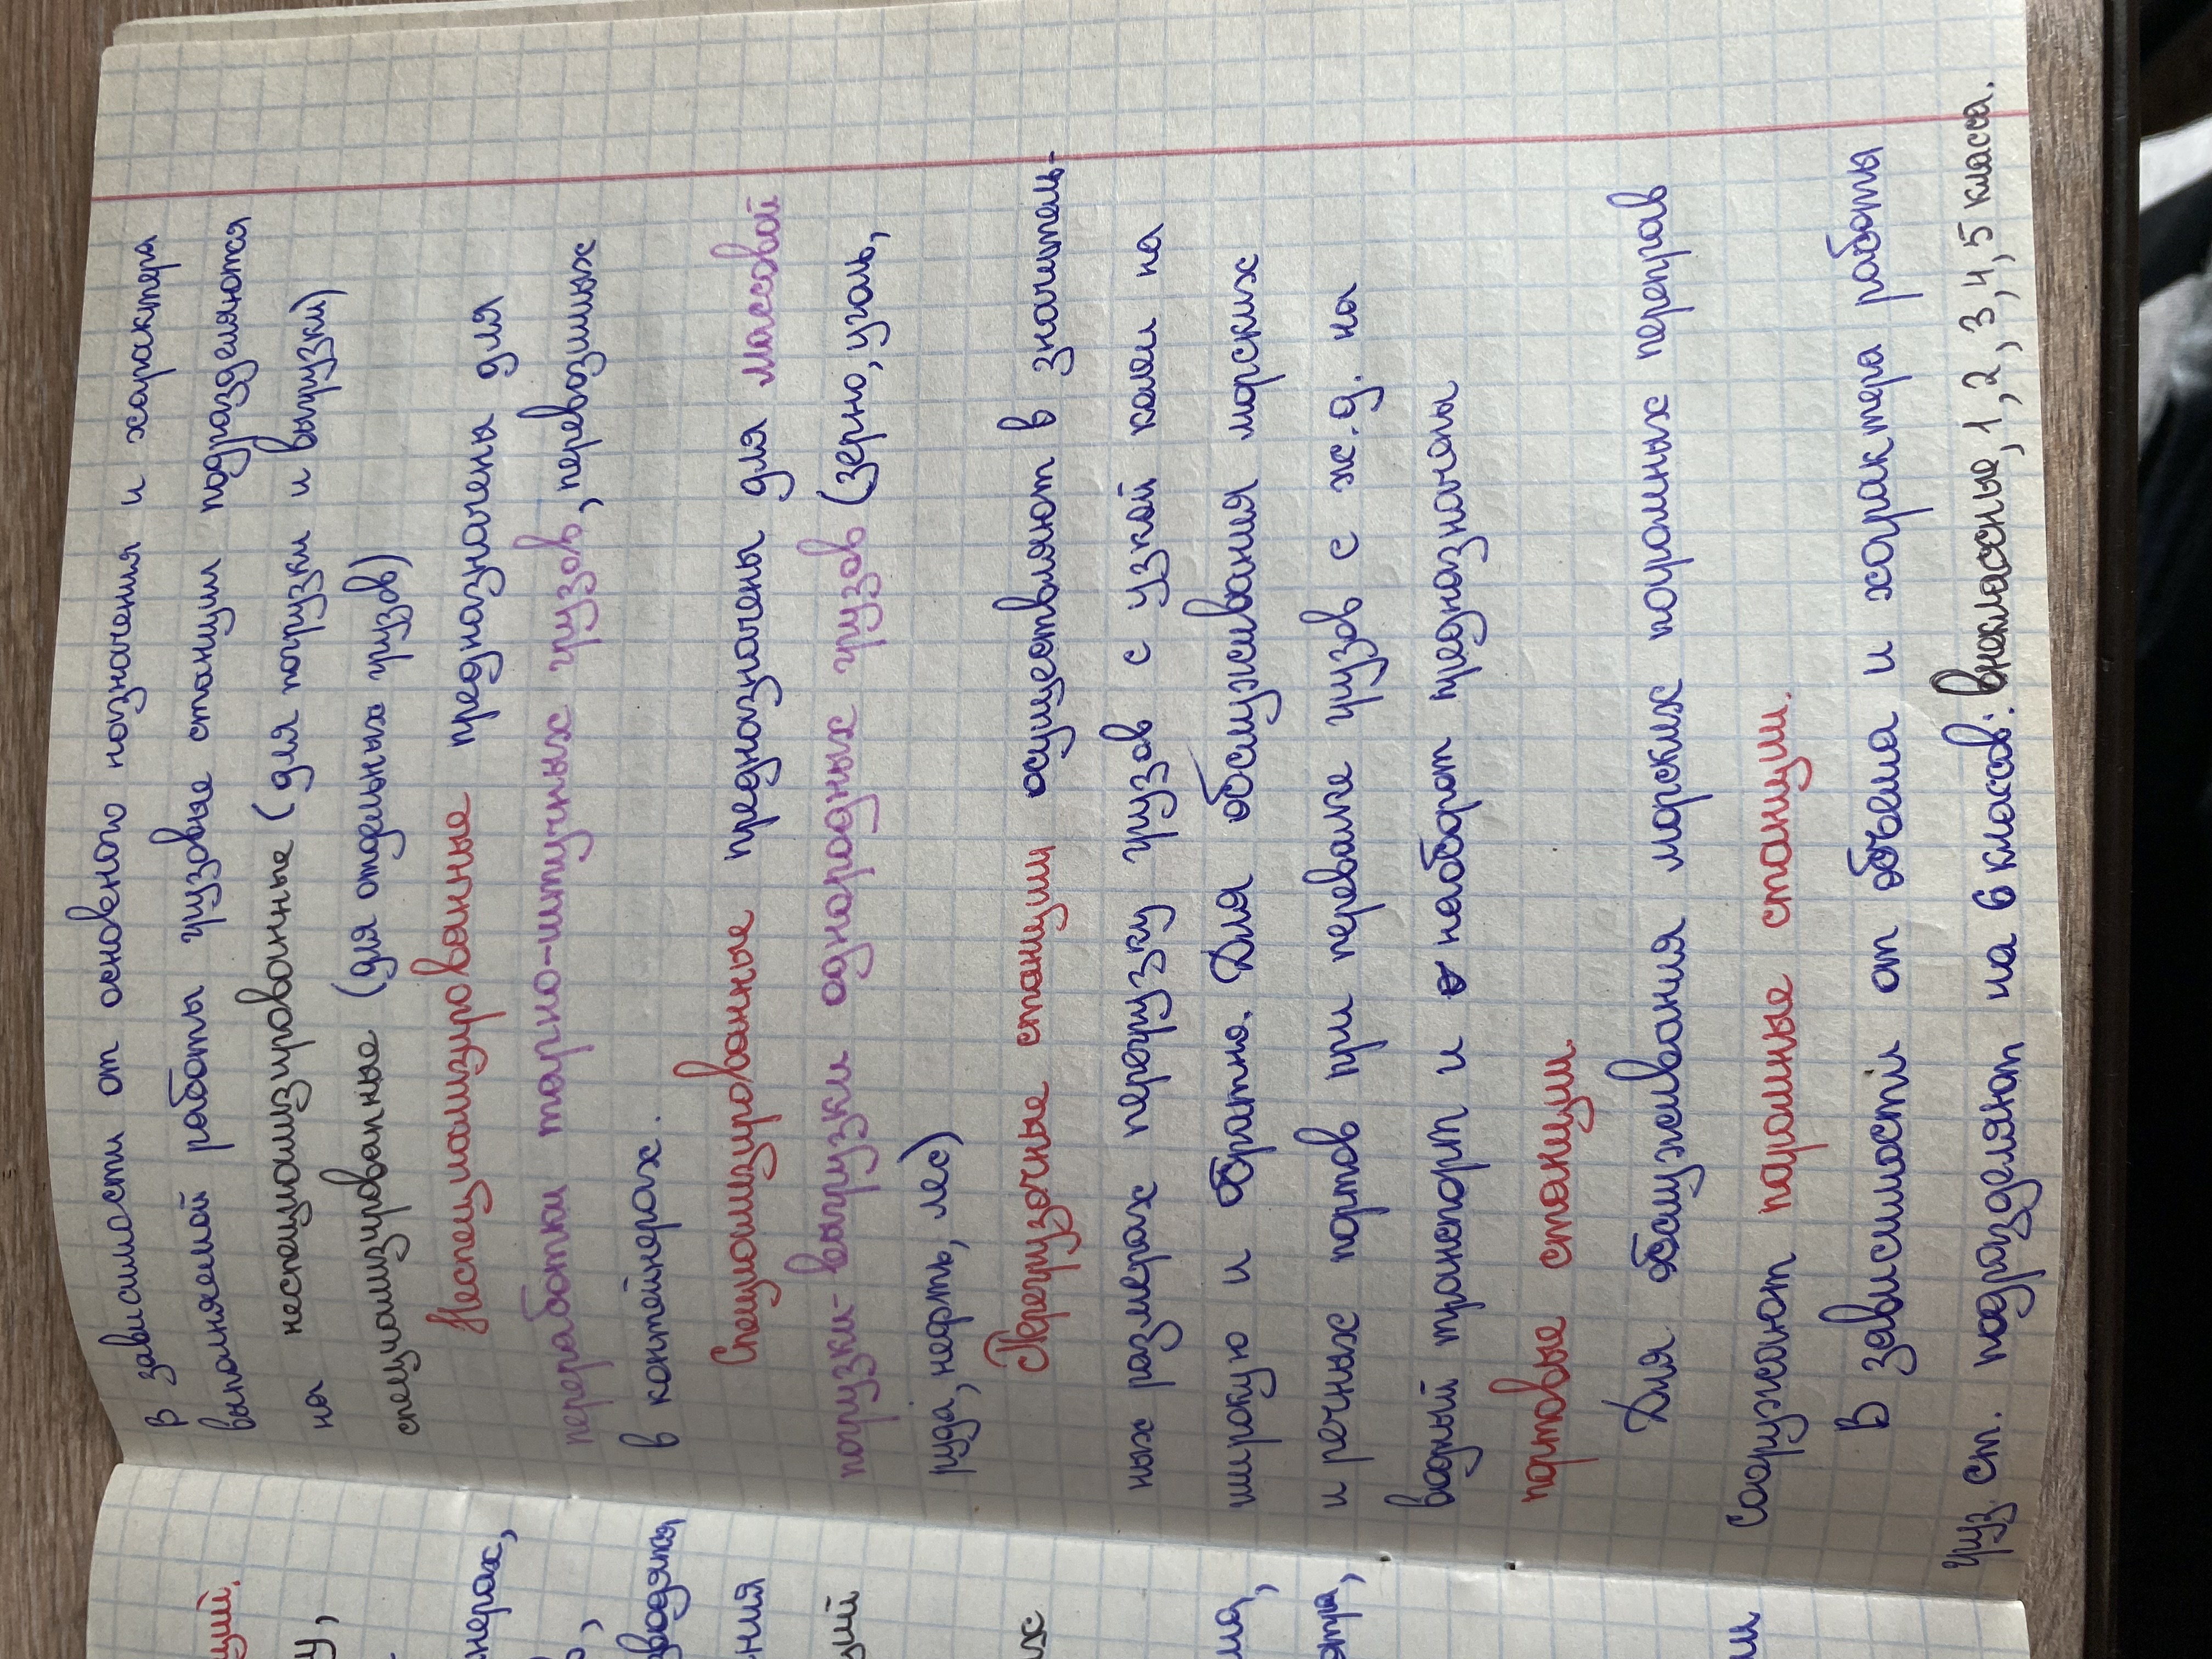 В зависимости от основного назначения и характера
выполняемой работы грузовые станции подразделяются
на неспециализированные (для погрузки и выгрузки)
специализированные (для отдельных грузов)
Неспециализированные предназначены для
переработки тарно-штучных грузов, перевозимых
в контейнерах.
Специализированные предназначены для массовой
погрузки-выгрузки однородных грузов (зерно, уголь,
руда, нефть, лес)
Перегрузочные станции осуществляют в значитель-
ных размерах перегрузку грузов с узкой колеи на
широкую и обратно. Для обслуживания морских
и речных портов при перевалке грузов с ж.д. на
водный транспорт и наоборот предназначены
портовые станции.
Для обслуживания морских паромных переправ
сооружают паромные станции.
В зависимости от объема и характера работы
груз. ст. подразделяют на 6 классов: внеклассные, 1, 2, 3, 4, 5 класса.
ций.
у,
нерах,
зводятся
ния
ий
их